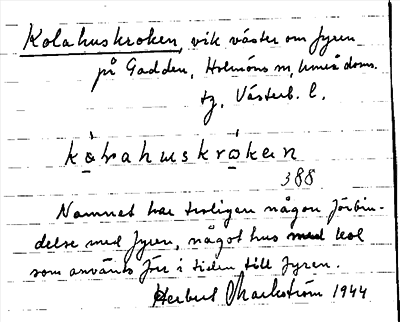 Kolahuskroken, vik väster om fyren
på Gadden, Holmöns sn, Umeå doms.
tg, Västerb. l.
kòlahuskrókein
388
Namnet har troligen någon förbin-
delse med fyren, något hus med kol
som använts förr i tiden till fyren.
Herbert Markström 1944